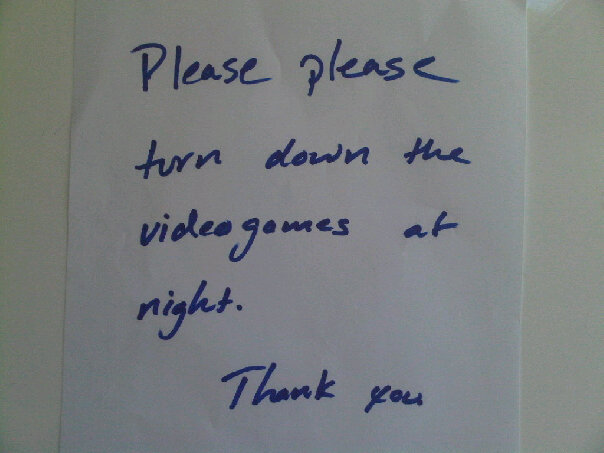 Please please
turn down the
videogames at
night.
Thank you